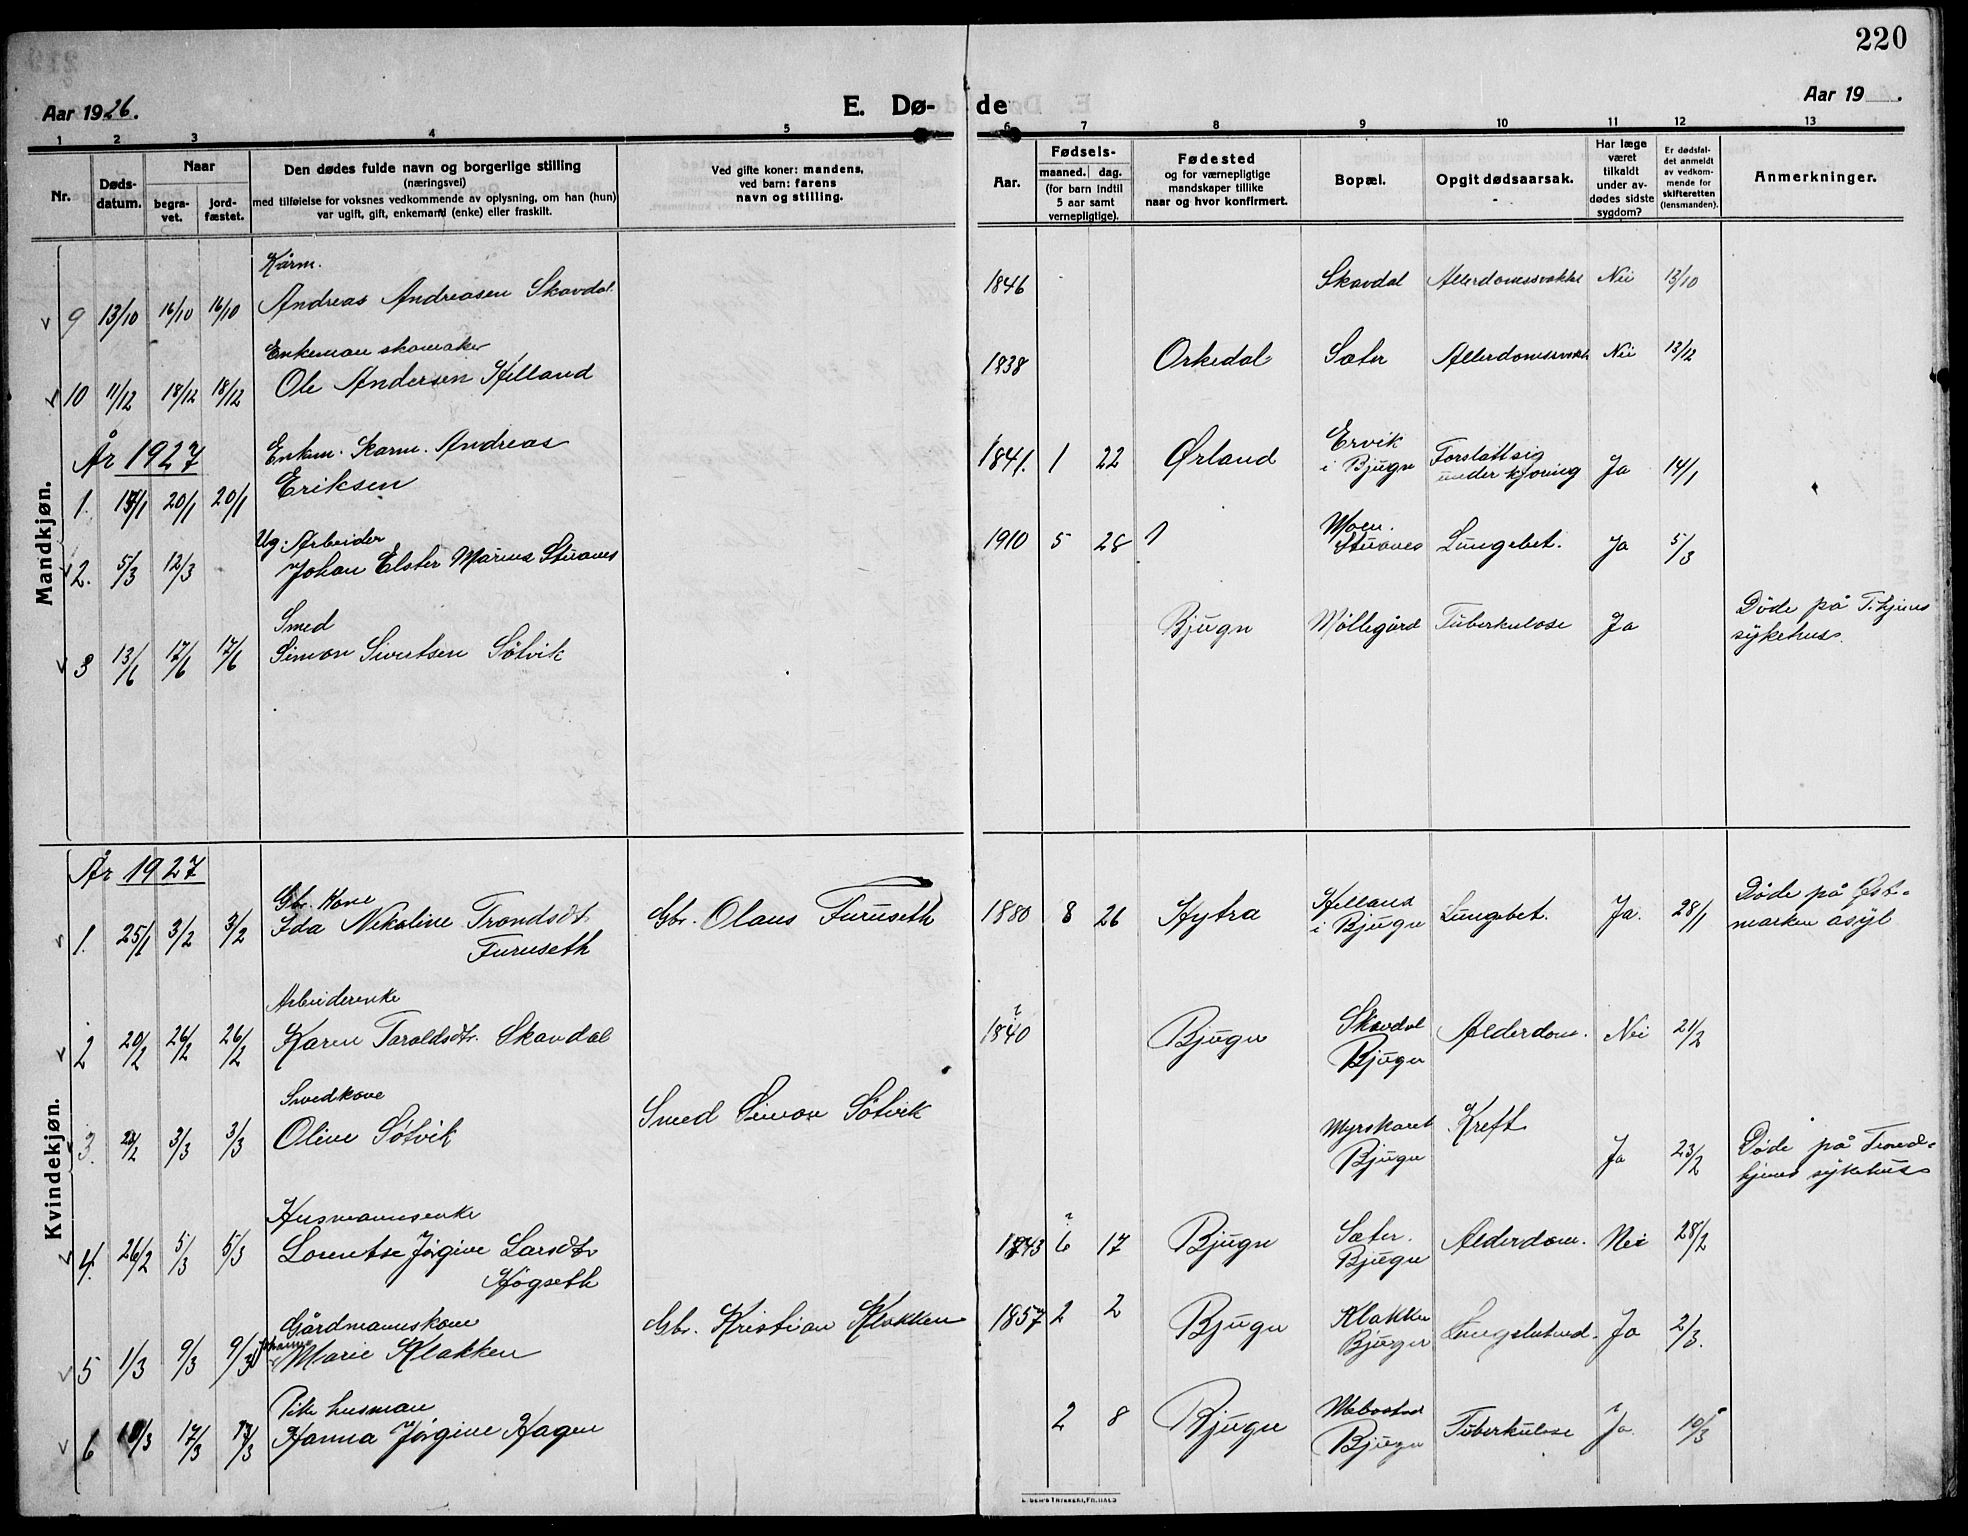 220
Aar 1926. E. Dø- de Aar 19 .
1 2 3 4 5 6 7 8 9 10 11 12 13
Nr.
Døds-
datum.
Naar
begra-
vet.
jord-
fæstet.
Den dødes fulde navn og borgerlige stilling
(næringsvei)
med tilføielse for voksnes vedkommende av oplysning, om han (hun)
var ugift, gift, enkemand (enke) eller fraskilt.
Ved gifte koner: mandens,
ved barn: farens
navn og stilling.
Aar.
Fødsels-
maaned. dag.
(for barn indtil
5 aar samt
vernepligtige).
Fødested
og for værnepligtige
mandskaper tillike
naar og hvor konfirmert.
Bopæl.
Opgit dødsaarsak.
Har læge
været
tilkaldt
under av-
dødes sidste
sygdom?
Er dødsfal-
det anmeldt
av vedkom-
mende for
skifteretten
(lensmanden).
Anmerkninger.
Mandkjøn.
Kårm.
9 13/10 16/10 16/10 Andreas Andreasen Skavdal. 1846 Skavdal Allerdomssvakhet Nei 13/10
Enkeman skomaker
10 11/12 18/12 18/12 Ole Andersen Helland 1838 Orkedal Sæter Allerdomssvakh Nei 13/12
År 1927
Enkm. Karm. Andreas
1. 17/1 20/1 20/1 Eriksen 1841. 1 22 Ørland Ervik
i Bjugn Forslått sig
under kjøring Ja 14/1
Ug. Arbeider
2. 5/3 12/3 Johan Elster Marius Stuanes 1910 5 28 Moen.
Stuanes Lungebet. Ja 5/3
Smed
3 13/6 17/6 17/6 Simon Sivertsen Søtvik Bjugn Møllegård Tuberkulose Ja Døde på T.hjems
sykehus.
Kvindekjøn.
År 1927
Gbr. kone
1. 25/1 3/2 3/2 Ida Nikoline Trondsdtr
Furuseth Gbr. Olaus Furuseth 1880 8 26 Hytra Helland
i Bjugn Lungebet. Ja. 28/1 Døde på Øst-
marken asyl
Arbeiderenke
2 20/2 26/2 26/2 Karen Taraldsdtr. Skavdal 1840 ? Bjugn Skavdal
Bjugn Alderdom. Nei 21/2
Smedkone
3. 3/3 3/3 Oline Søtvik Smed Simon Søtvik Myrskaret
Bjugn Kreft Ja 23/2 Døde på Trond-
hjems sykehus
Husmannsenke
4. 26/2 5/3 5/3 Lorentse Jørgine Larsdtr
Høgseth 1843 6 ? 17 Bjugn Sæter.
Bjugn Alderdom. Nei 28/2
Gårdmannskone
5 1/3 9/3 9/3 Johanna Marie Klakken Gbr. Kristian Klakken 1857 2 2 Bjugn Klakken
Bjugn Ja 2/3.
Pike husman
6 10/3 17/3 17/3 Hanna Jørgine Hagen 2 8 Bjugn Mebostad
Bjugn Tuberkulose Ja ? 10/3